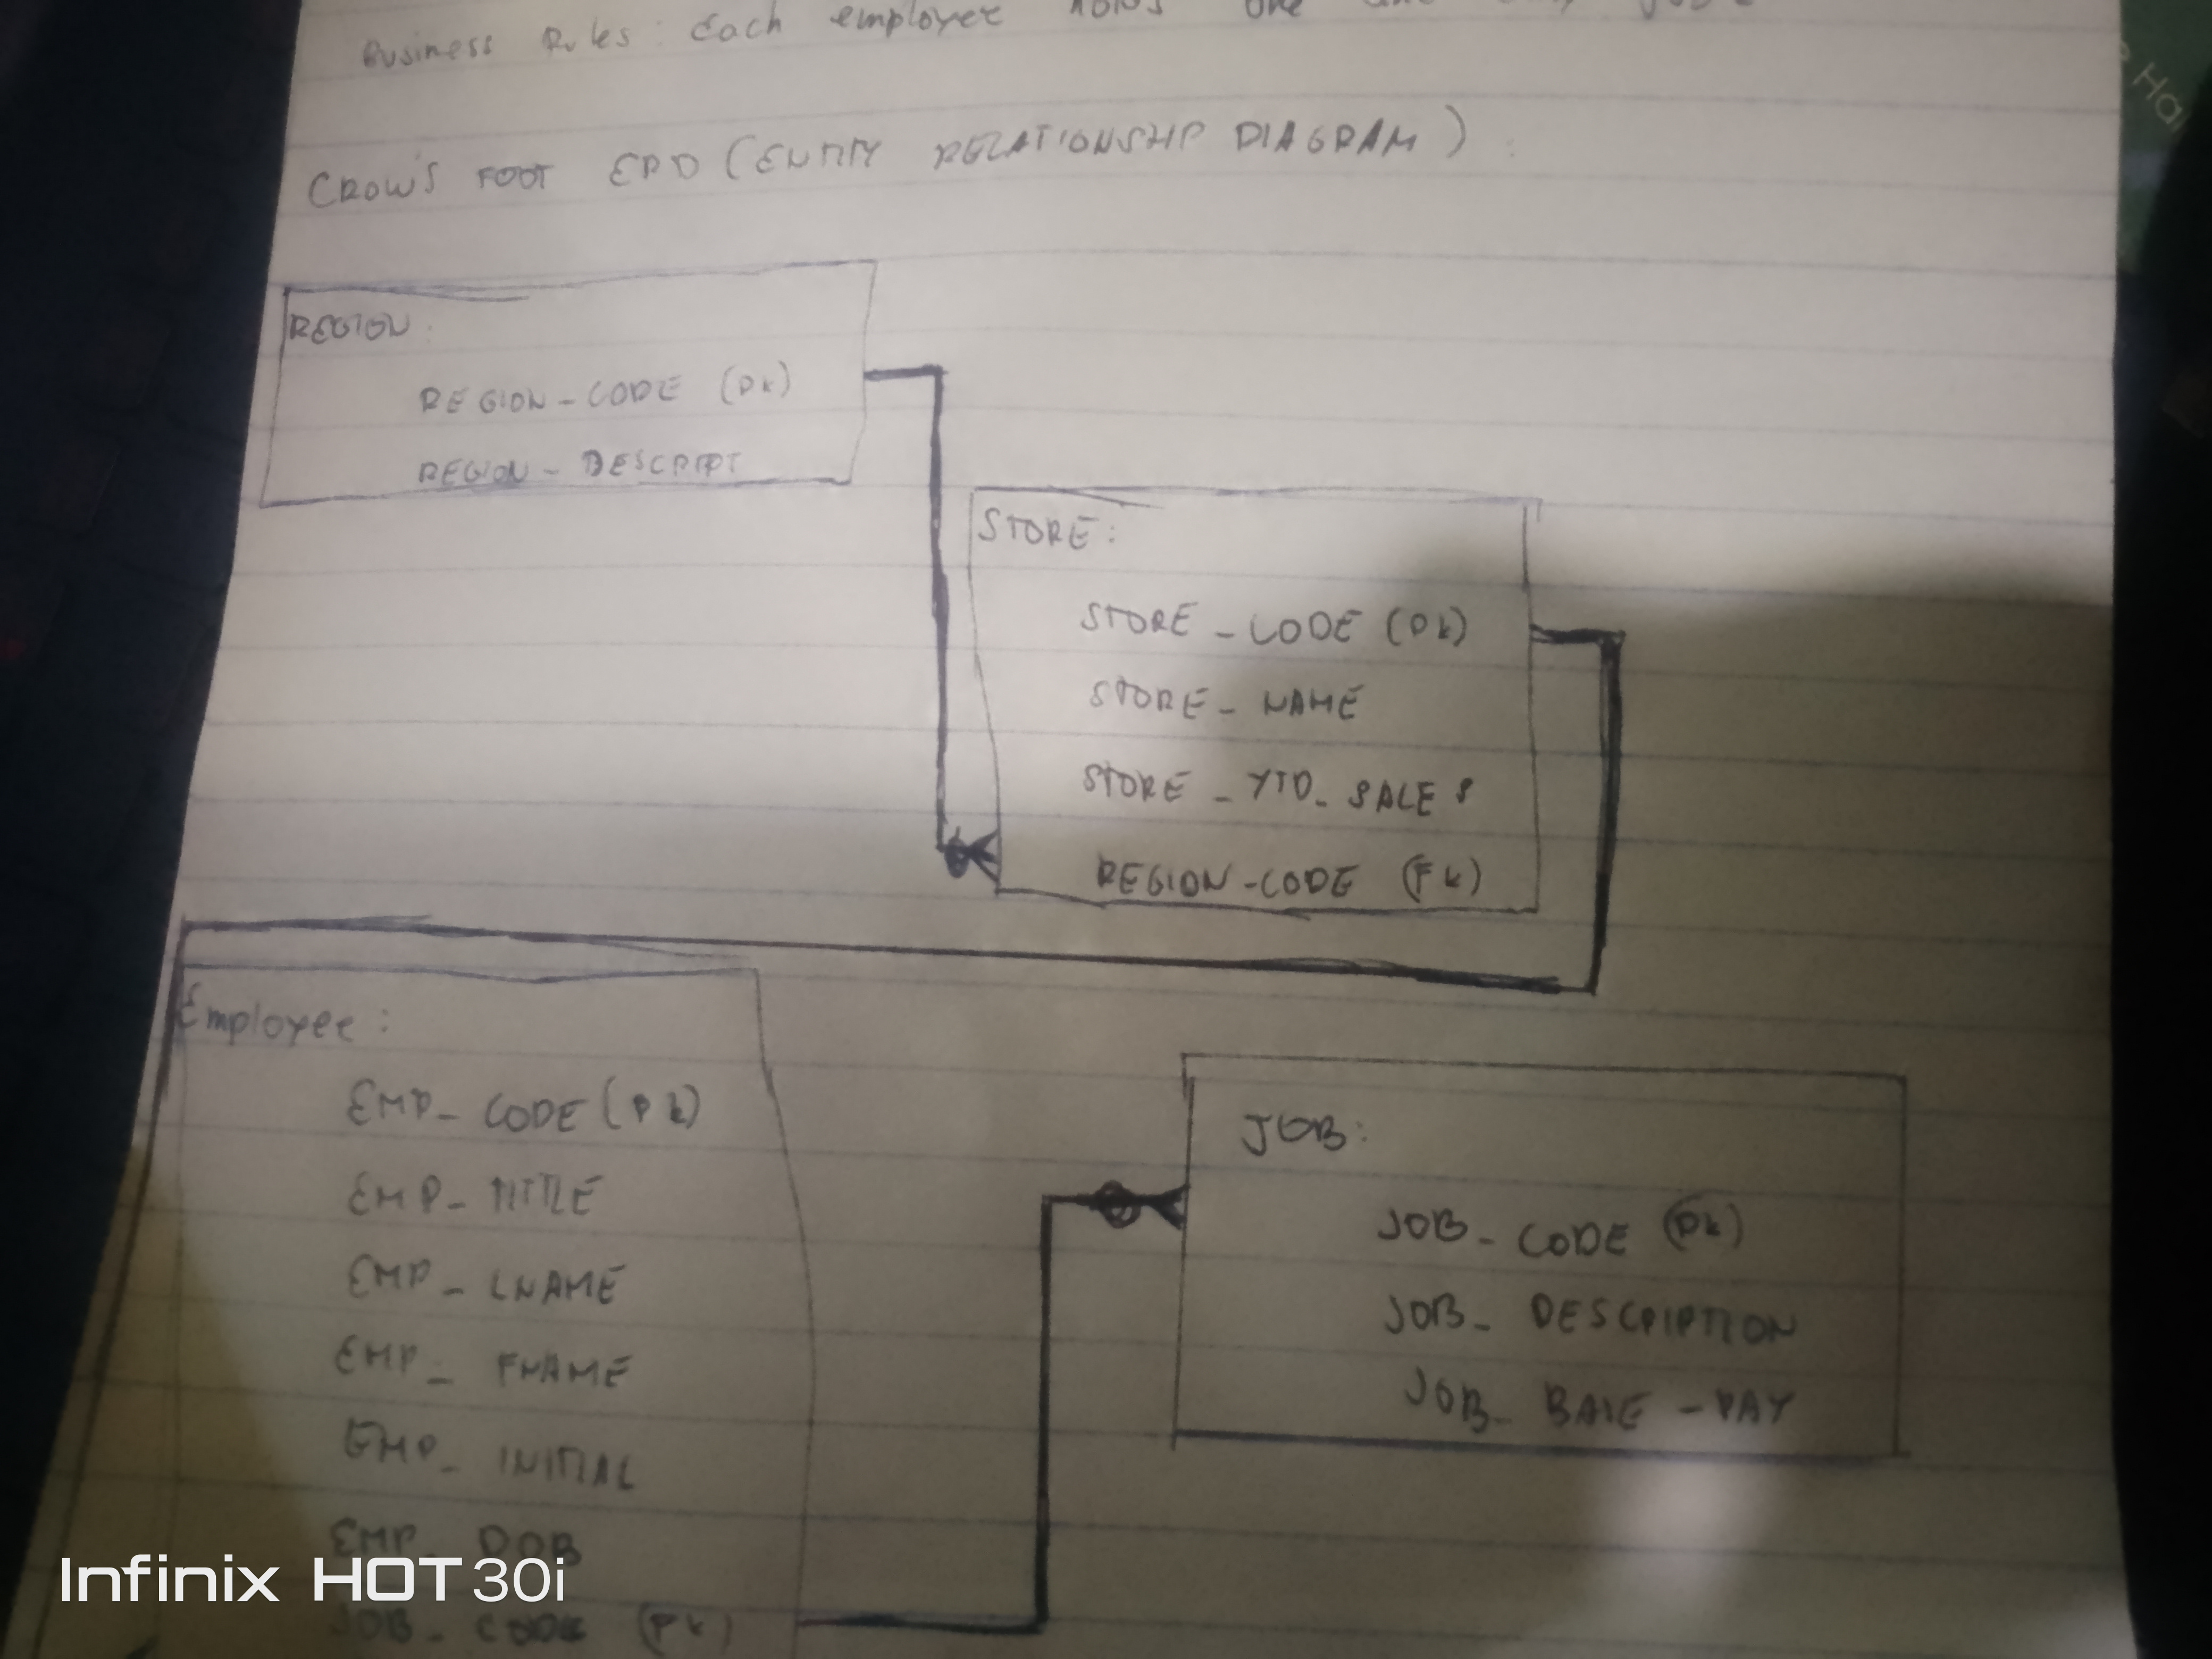 Business Rules: Each employee holds one and only
CROW'S FOOT ERD (ENTITY RELATIONSHIP DIAGRAM):
REGION:
REGION-CODE (PK)
REGION-DESCRIPT
STORE:
STORE_CODE (PK)
STORE_NAME
STORE_YTD_SALES
REGION-CODE (FK)
Employee:
EMP_CODE (PK)
EMP_TITLE
EMP_LNAME
EMP_FNAME
EMP_INITIAL
EMP_DOB
JOB_CODE (FK)
JOB:
JOB_CODE (PK)
JOB_DESCRIPTION
JOB_BASE-PAY
Infinix HOT 30i